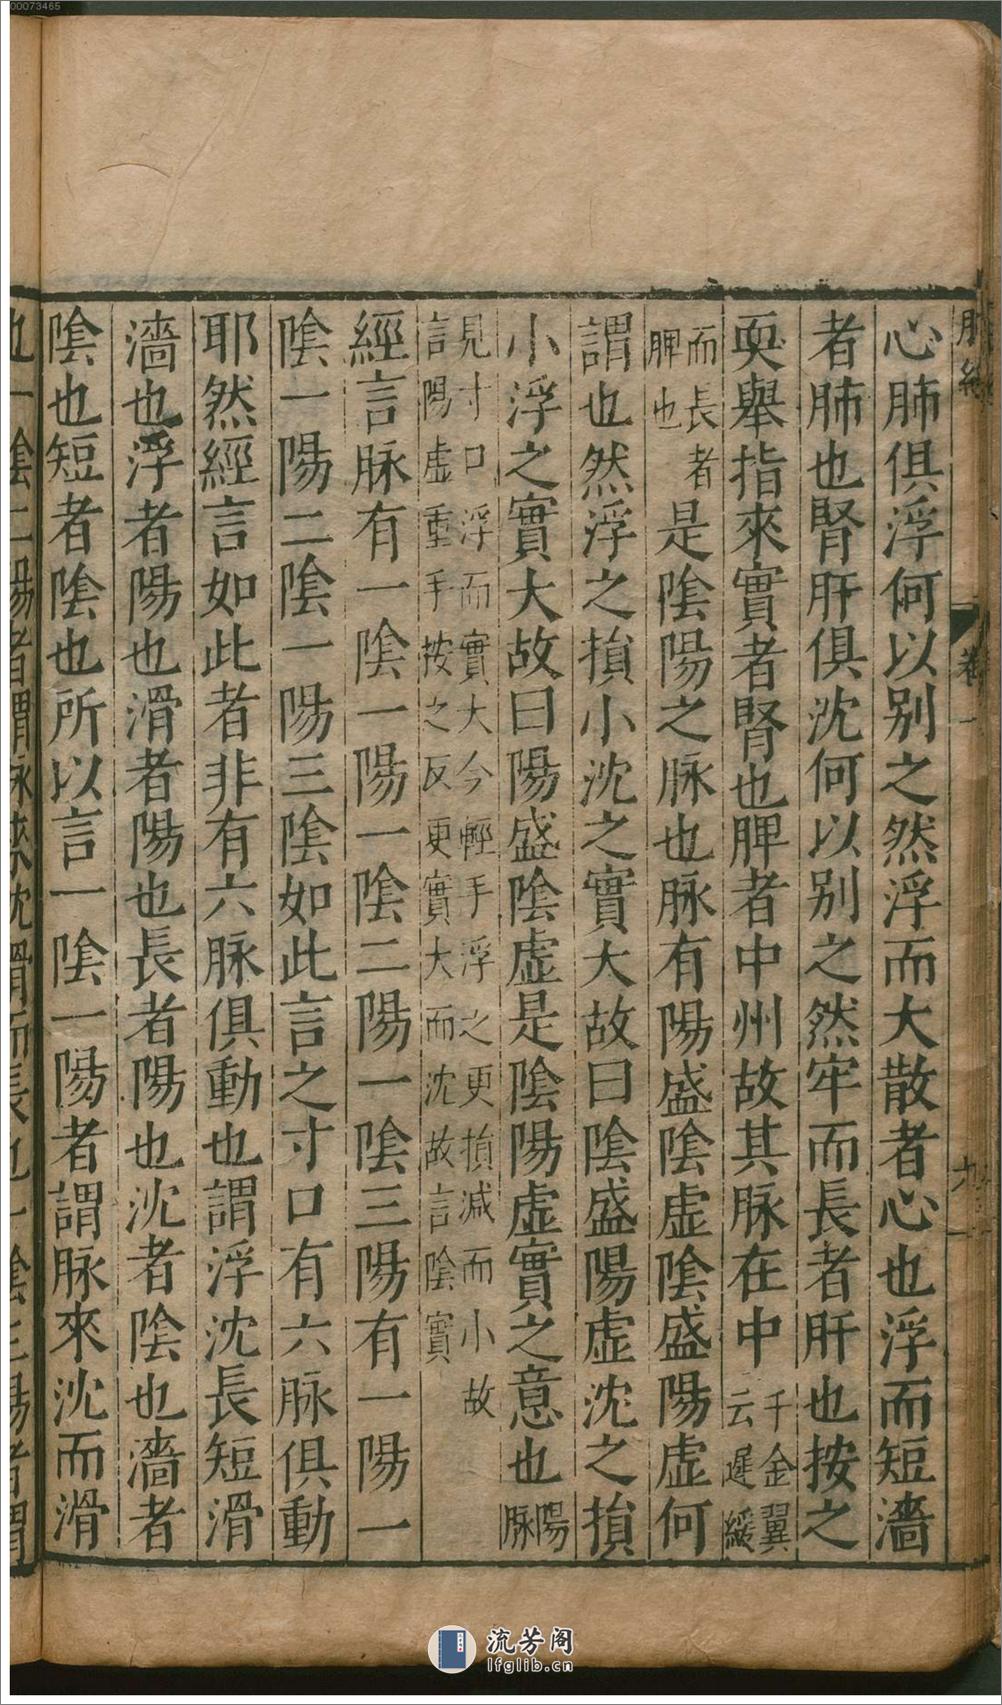 00073465
脉經 卷一 九
心肺俱浮何以别之然浮而大散者心也浮而短濇
者肺也腎肝俱沈何以别之然牢而長者肝也按之
耎舉指來實者腎也脾者中州故其脉在中千金翼云遲緩
而長者脾也是陰陽之脉也脉有陽盛陰虚陰盛陽虚何
謂也然浮之損小沈之實大故曰陰盛陽虚沈之損
小浮之實大故曰陽盛陰虚是陰陽虚實之意也陽脉
見寸口浮而實大今輕手浮之更損減而小故言陽虚重手按之反更實大而沈故言陰實
經言脉有一陰一陽一陰二陽一陰三陽有一陽一
陰一陽二陰一陽三陰如此言之寸口有六脉俱動
耶然經言如此者非有六脉俱動也謂浮沈長短滑
濇也浮者陽也滑者陽也長者陽也沈者陰也濇者
陰也短者陰也所以言一陰一陽者謂脉來沈而滑
也一陰二陽者謂脉來沈滑而長也一陰三陽者謂
流芳阁
lfglib.cn